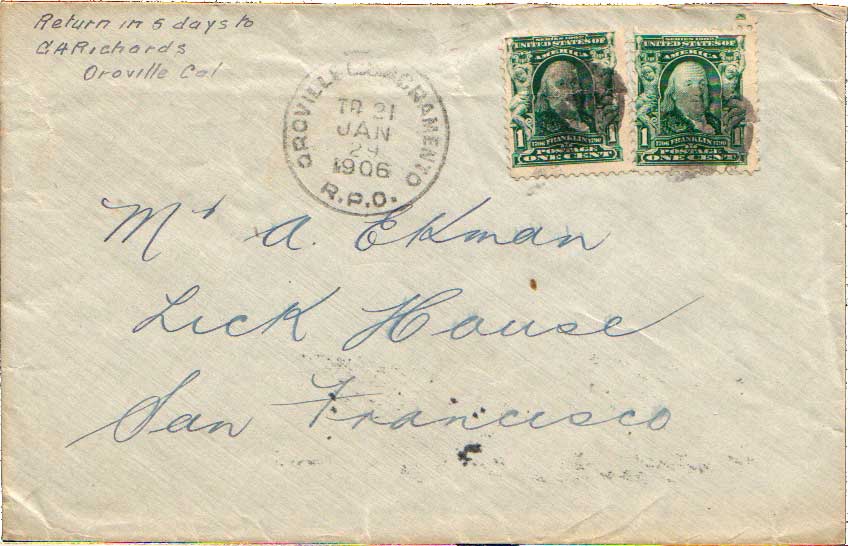 Return in 5 days to
G A Richards
Oroville Cal
OROVILLE & SACRAMENTO
TR 21
JAN
29
1906
R.P.O.
SERIES 1902
UNITED STATES OF
AMERICA
1 1
1706 FRANKLIN 1790
POSTAGE
ONE CENT
SERIES 1902
UNITED STATES OF
AMERICA
1 1
1706 FRANKLIN 1790
POSTAGE
ONE CENT
Mr A. Ekman
Lick House
San Francisco